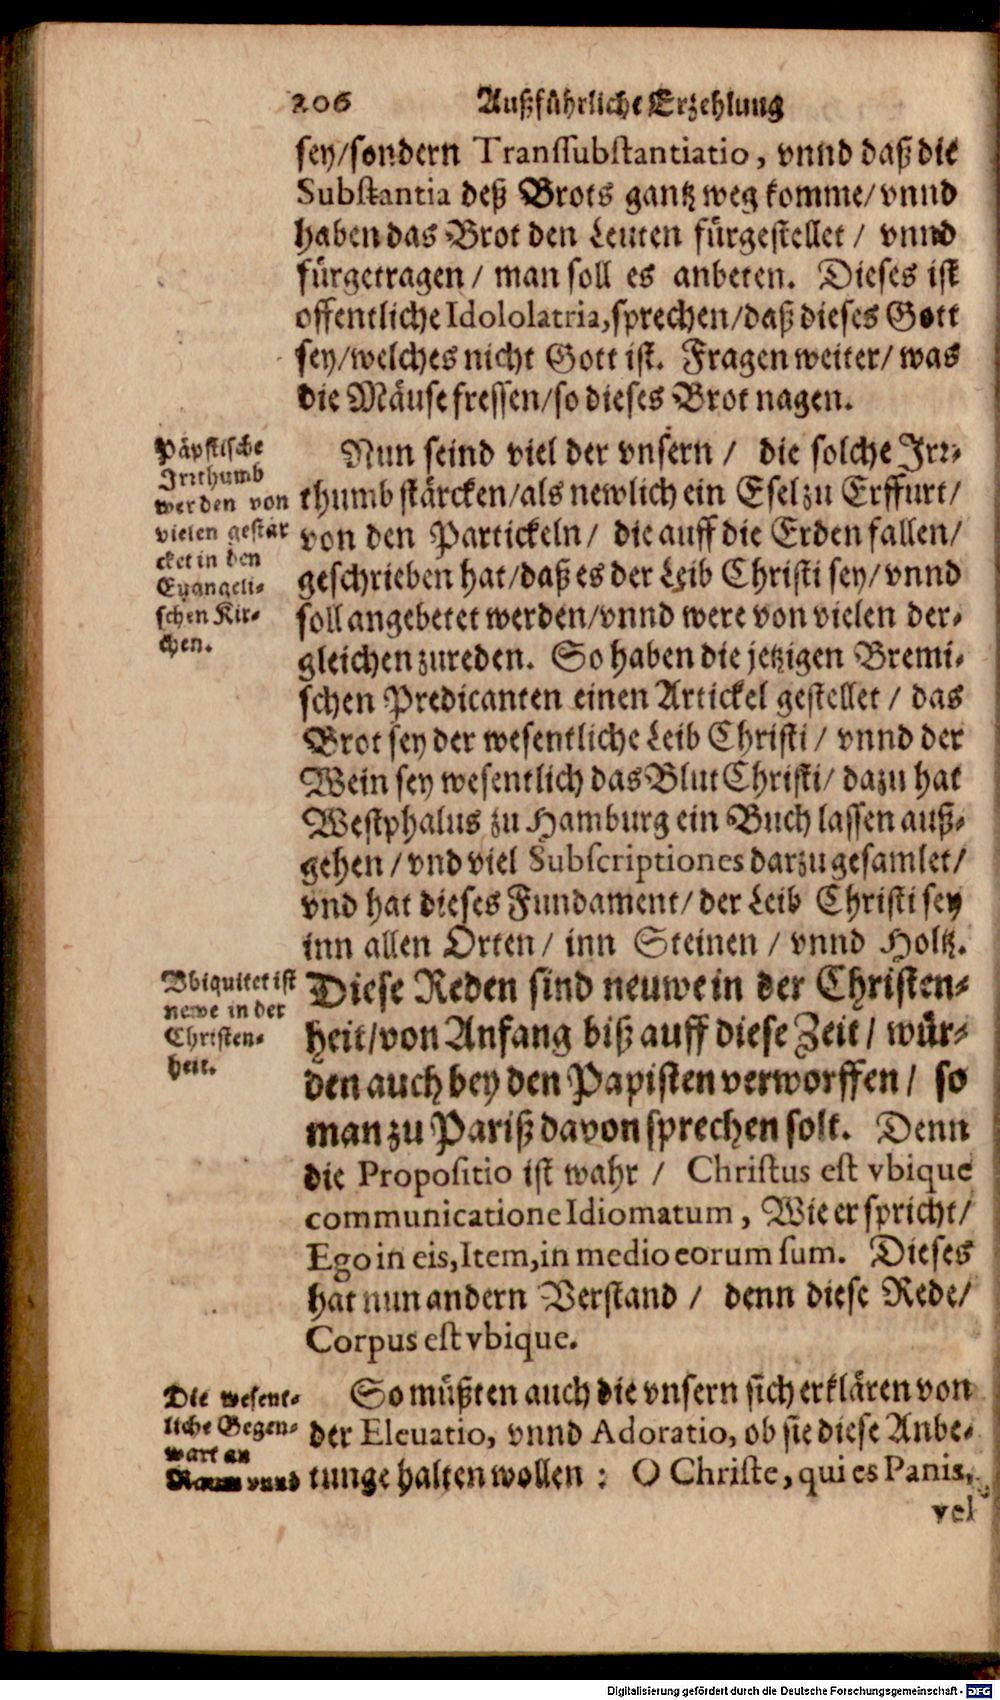 206 Außführliche Erzehlung
sey/sondern Transsubstantiatio, vnnd daß die
Substantia deß Brots gantz weg komme/ vnnd
haben das Brot den Leuten fürgestellet / vnnd
fürgetragen / man soll es anbeten. Dieses ist
offentliche Idololatria, sprechen/daß dieses Gott
sey/welches nicht Gott ist. Fragen weiter/ was
die Mäuse fressen/so dieses Brot nagen.
Päpstische
Irrthumb
werden von
vielen gestär
cket in den
Euangeli-
schen Kir-
chen.
Nun seind viel der vnsern / die solche Irr-
thumb stärcken/als newlich ein Esel zu Erffurt/
von den Partickeln / die auff die Erden fallen/
geschrieben hat/daß es der Leib Christi sey/ vnnd
soll angebetet werden/vnnd were von vielen der-
gleichen zureden. So haben die jetzigen Bremi-
schen Predicanten einen Artickel gestellet / das
Brot sey der wesentliche Leib Christi / vnnd der
Wein sey wesentlich das Blut Christi/ dazu hat
Westphalus zu Hamburg ein Buch lassen auß-
gehen / vnd viel Subscriptiones darzu gesamlet/
vnd hat dieses Fundament/ der Leib Christi sey
inn allen Orten/ inn Steinen / vnnd Holtz.
Vbiquitet ist
newe in der
Christen-
heit.
Diese Reden sind neuwe in der Christen-
heit/von Anfang biß auff diese Zeit/ wür-
den auch bey den Papisten verworffen/ so
man zu Pariß davon sprechen solt. Denn
die Propositio ist wahr / Christus est vbique
communicatione Idiomatum, Wie er spricht/
Ego in eis, Item, in medio eorum sum. Dieses
hat nun andern Verstand / denn diese Rede/
Corpus est vbique.
Die wesent-
liche Gegen-
wart an
Raum vnnd
So müßten auch die vnsern sich erklären von
der Eleuatio, vnnd Adoratio, ob sie diese Anbe-
tunge halten wollen : O Christe, qui es Panis,
vel
Digitalisierung gefördert durch die Deutsche Forschungsgemeinschaft - DFG